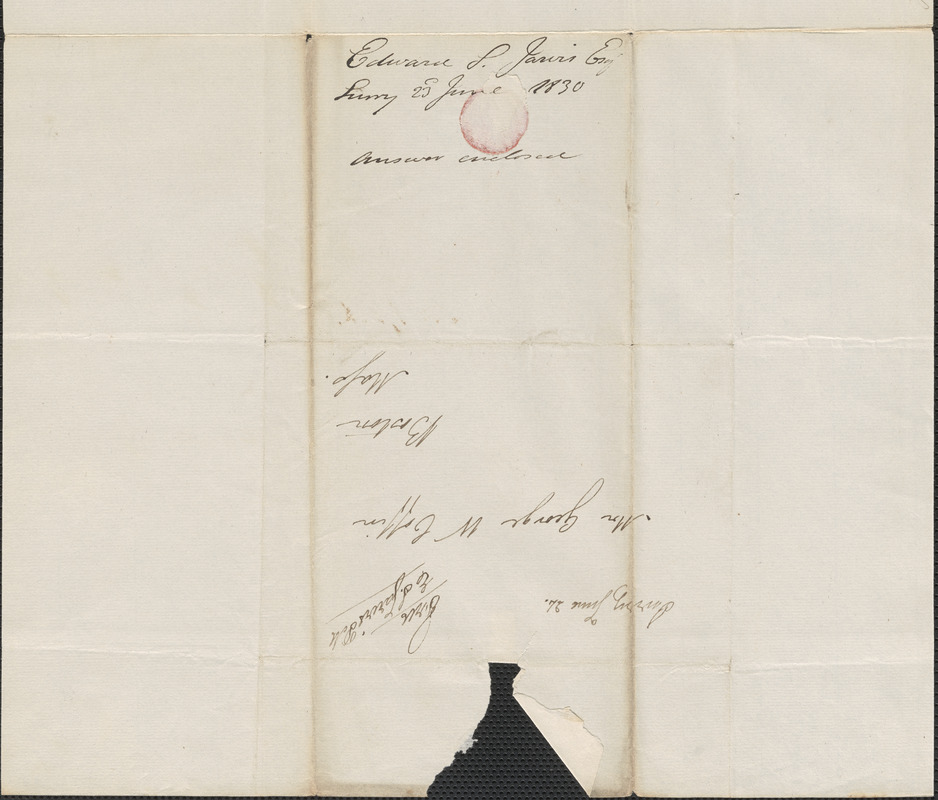 Edward S. Jarvis Esq
Surry 23 June 1830
answer enclosed
Surry June 24.
Free
E. S. Jarvis P M
Mr George W Coffin
Boston
Mass.